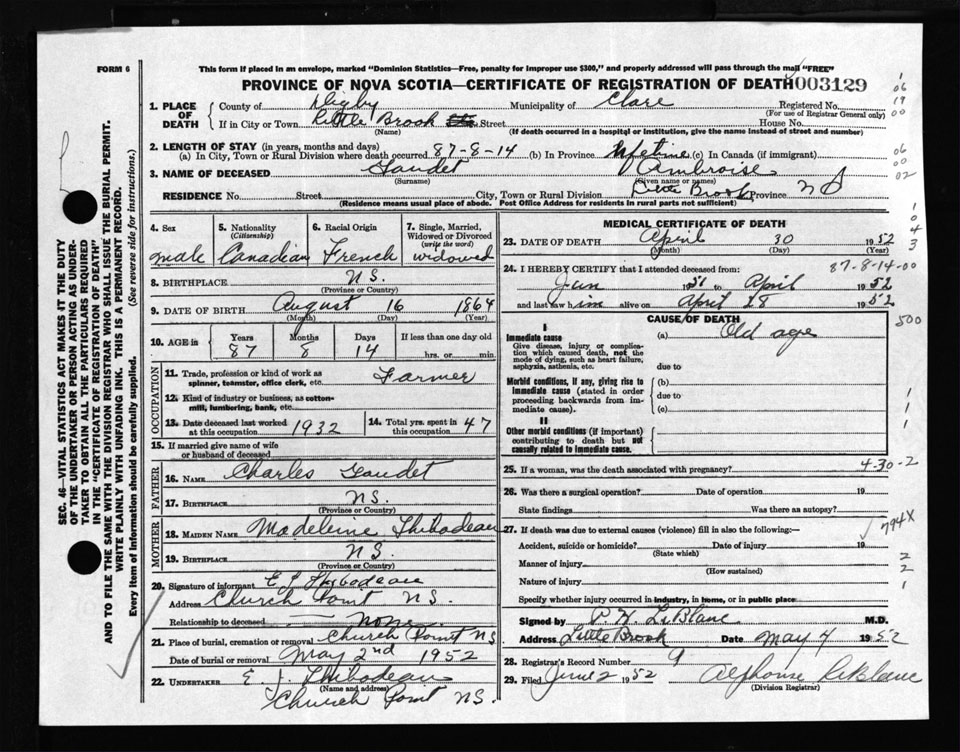 FORM 6
This form if placed in an envelope, marked "Dominion Statistics—Free, penalty for improper use $300," and properly addressed will pass through the mail "FREE"
PROVINCE OF NOVA SCOTIA—CERTIFICATE OF REGISTRATION OF DEATH 003129
1. PLACE OF DEATH County of Digby Municipality of Clare Registered No.
(For use of Registrar General only)
If in City or Town Little Brook Street House No.
(Name) (If death occurred in a hospital or institution, give the name instead of street and number)
2. LENGTH OF STAY (in years, months and days)
(a) In City, Town or Rural Division where death occurred 87-8-14 (b) In Province lifetime (c) In Canada (if immigrant)
3. NAME OF DECEASED Gaudet Ambroise
(Surname) (Given name or names)
RESIDENCE No. Street City, Town or Rural Division Little Brook Province NS
(Residence means usual place of abode. Post Office Address for residents in rural parts not sufficient)
4. Sex
male
5. Nationality
(Citizenship)
Canadian
6. Racial Origin
French
7. Single, Married, Widowed or Divorced
(write the word)
widowed
8. BIRTHPLACE N.S.
(Province or Country)
9. DATE OF BIRTH August 16 1864
(Month) (Day) (Year)
10. AGE in Years Months Days If less than one day old
87 8 14 hrs. or min.
OCCUPATION
11. Trade, profession or kind of work as Farmer
spinner, teamster, office clerk, etc.
12. Kind of industry or business, as cotton-
mill, lumbering, bank, etc.
13. Date deceased last worked at this occupation 1932
14. Total yrs. spent in this occupation 47
15. If married give name of wife
or husband of deceased
FATHER
16. NAME Charles Gaudet
17. BIRTHPLACE N.S.
(Province or Country)
MOTHER
18. MAIDEN NAME Madeleine Thibodeau
19. BIRTHPLACE N.S.
(Province or Country)
20. Signature of informant E J Thibodeau
Address Church Point N.S.
Relationship to deceased none
21. Place of burial, cremation or removal Church Point NS
Date of burial or removal May 2nd 1952
22. UNDERTAKER E. J. Thibodeau
(Name and address)
Church Point NS.
MEDICAL CERTIFICATE OF DEATH
23. DATE OF DEATH April 30 1952
(Month) (Day) (Year)
87-8-14-00
24. I HEREBY CERTIFY that I attended deceased from:
Jun 1951 to April 1952
and last saw him alive on April 28 1952
CAUSE OF DEATH
I
Immediate cause
Give disease, injury or complication which caused death, not the mode of dying, such as heart failure, asphyxia, asthenia, etc.
(a) Old age
due to
Morbid conditions, if any, giving rise to immediate cause (stated in order proceeding backwards from immediate cause).
(b)
due to
(c)
II
Other morbid conditions (if important) contributing to death but not causally related to immediate cause.
500
25. If a woman, was the death associated with pregnancy? 4-30-2
26. Was there a surgical operation? Date of operation 19
State findings Was there an autopsy?
27. If death was due to external causes (violence) fill in also the following:
794X
Accident, suicide or homicide? Date of injury 19
(State which)
Manner of injury
(How sustained)
Nature of injury
Specify whether injury occurred in industry, in home, or in public place
Signed by P. H. LeBlanc M.D.
Address Little Brook Date May 4 1952
28. Registrar's Record Number 9
29. Filed June 2 1952 Alphonse LeBlanc
(Division Registrar)
SEC. 46—VITAL STATISTICS ACT MAKES IT THE DUTY
OF THE UNDERTAKER OR PERSON ACTING AS UNDER-
TAKER TO OBTAIN ALL THE PARTICULARS REQUIRED
IN THE "CERTIFICATE OF REGISTRATION OF DEATH"
AND TO FILE THE SAME WITH THE DIVISION REGISTRAR WHO SHALL ISSUE THE BURIAL PERMIT.
WRITE PLAINLY WITH UNFADING INK. THIS IS A PERMANENT RECORD.
Every item of information should be carefully supplied. (See reverse side for instructions.)
06
19
00
06
00
02
1
0
4
3
1
1
1
2
2
1